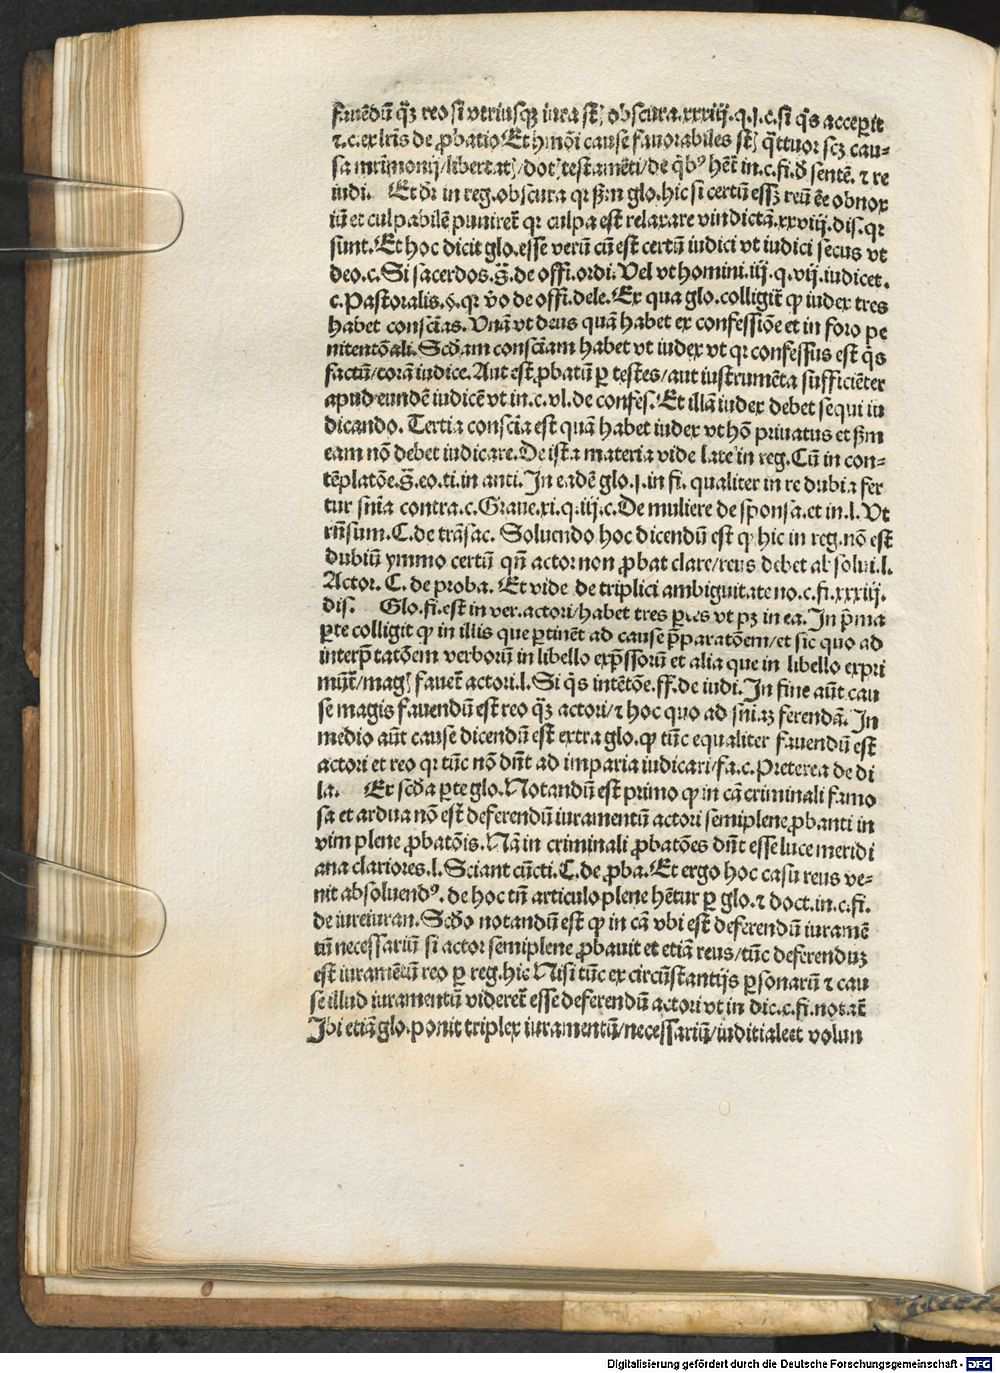 fauēdū q̄ꝫ reo si vtriusqꝫ iura st̄ obscura.xxxiij.q.j.c̄.si q̄s acceperit
⁊.c.ex lr̄is de ꝓbatio Et hmōi cause fauorabiles st̄ q̄ttuor scꝫ cau-
sa mr̄imonij/libertat̄/dot̄ testamēti/de q̄bꝰ het̄ in.c.fi.d̄ sentē. ⁊ re
iudi. Et dr̄ in reg.obscura qr ẜm glo.hic si certū esꝫ reū ēe obnox
iū et culpabilē puniret̄ qr culpa est relaxare vindictā.xxviij.dis.qr
sunt.Et hoc dicit glo.esse verū cū est certū iudici vt iudici secus vt
deo.c.Si sacerdos.s̄.de offi.ordi.Vel vt homini.iij.q.vij.iudicet.
c.Pastoralis.§.qr v̄o de offi.dele.Ex qua glo.colligit̄ ꝙ iudex tres
habet consciās.Vnā vt deus quā habet ex confessiōe et in foro pe
nitentōali.Scd̄am consciam habet vt iudex vt qr confessus est q̄s
factū/corā iudice.Aut est ꝓbatū ꝑ testes/aut iustrumēta sufficiēter
apud eundē iudicē vt in.c.vl.de confes.Et illā iudex debet sequi iu
dicando. Tertia conscīa est quā habet iudex vt hō priuatus et ẜm
eam nō debet iudicare.De ista materia vide late in reg.Cū in con-
tēplatōe.s̄.eo.ti.in anti.In eadē glo.j.in fi. qualiter in re dubia fer
tur snīa contra.c.Graue.xi.q.iij.c.De muliere de sponsa.et in.l.Vt
rn̄sum.C.de trāsac. Soluendo hoc dicendū est ꝙ hic in reg.nō est
dubiū ymmo certū qn̄ actor non ꝓbat clare/reus debet absolui.l.
Actor.C.de proba. Et vide de triplici ambiguitate no.c.fi.xxxiij.
dis. Glo.fi.est in ver.actori/habet tres ꝑtes vt pꝫ in ea.In p̄ma
ꝑte colligit ꝙ in illis que ꝑtinēt ad cause p̄paratōem/et sic quo ad
interp̄tatōem verborū in libello exp̄ssorū et alia que in libello expri
mūt̄/maḡ fauet̄ actori.l.Si q̄s intētōe.ff.de iudi.In fine aūt cau
se magis fauendū est reo q̄ꝫ actori/⁊ hoc quo ad snīaꝫ ferendā.In
medio aūt cause dicendū est extra glo.ꝙ tūc equaliter fauendū est
actori et reo qr tūc nō dn̄t ad imparia iudicari/fa.c.Preterea de di
la. Ex scd̄a ꝑte glo.Notandū est primo ꝙ in cā criminali famo
sa et ardua nō est deferendū iuramentū actori semiplene ꝓbanti in
vim plene ꝓbatōis.Nā in criminali ꝓbatōes dn̄t esse luce meridi
ana clariores.l.Sciant cūcti.C.de ꝓba.Et ergo hoc casu reus ve-
nit absoluendꝰ. de hoc tn̄ articulo plene hētur ꝑ glo.⁊ doct.in.c.fi.
de iureiuran.Scd̄o notandū est ꝙ in cā vbi est deferendū iuramē
tū necessariū si actor semiplene ꝓbauit et etiā reus/tūc deferenduꝫ
est iuramētū reo ꝑ reg.hic Nisi tūc ex circūstantijs ꝑsonarū ⁊ cau
se illud iuramentū videret̄ esse deferendū actori vt in dic.c.fi.notat̄
Ibi etiā glo.ponit triplex iuramentū/necessariū/iuditiale et volun
Digitalisierung gefördert durch die Deutsche Forschungsgemeinschaft - DFG